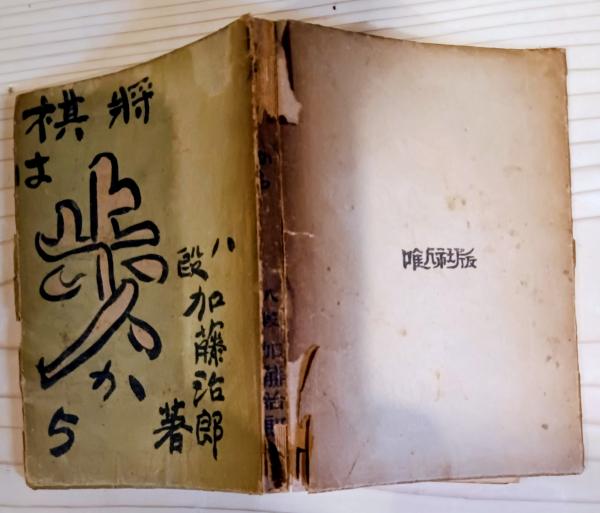 將棋は歩から
八段 加藤治郎 著
から 八段 加藤治郎
唯人社版